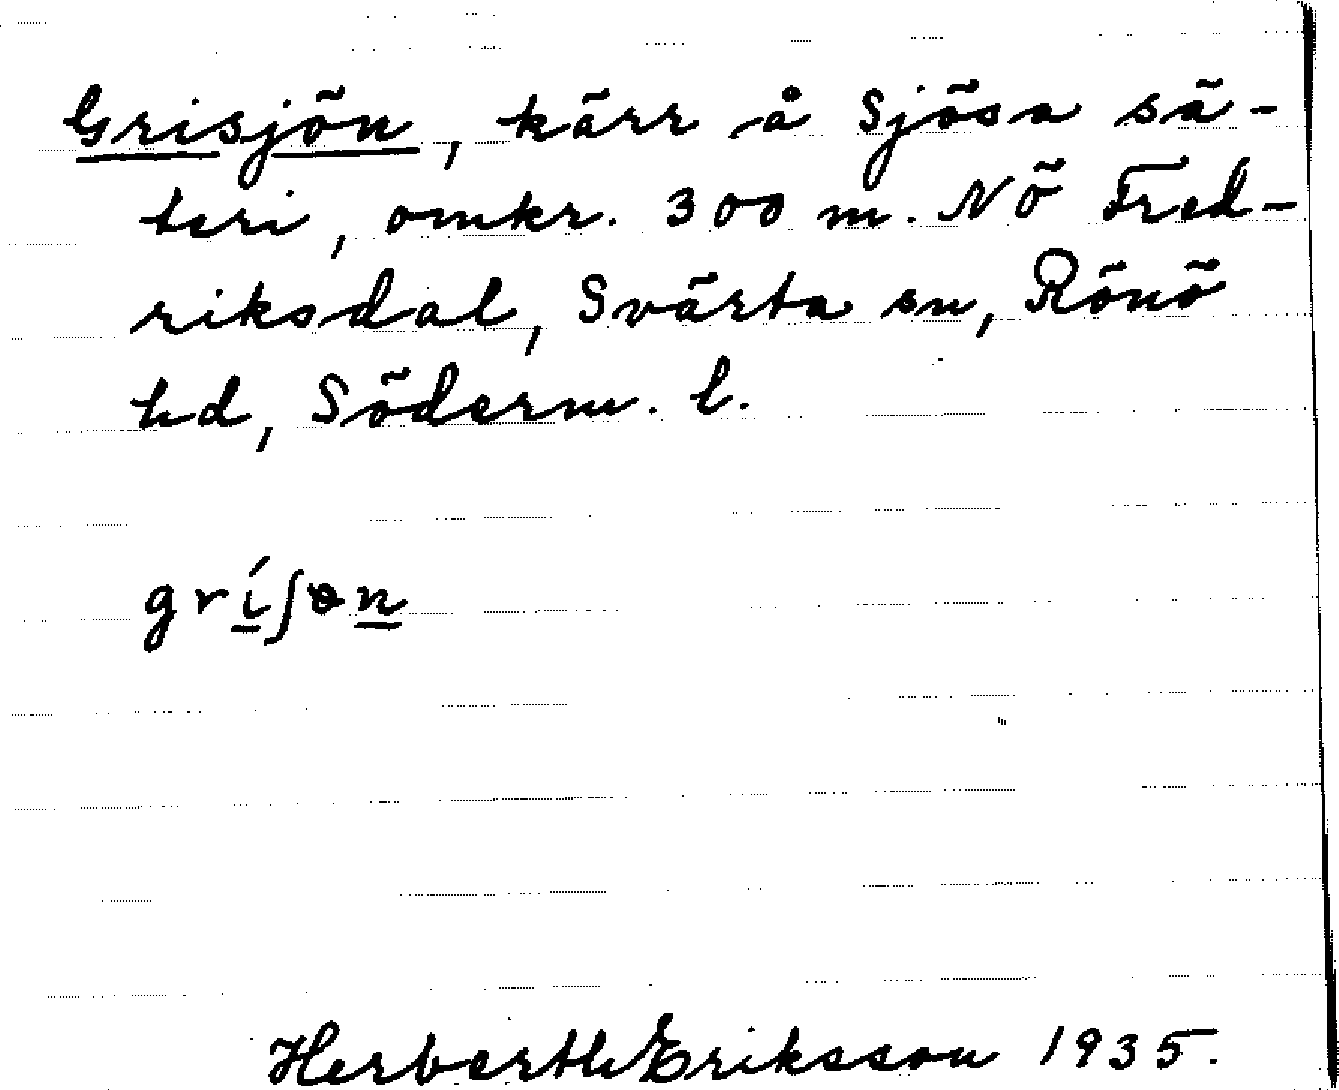 Grisjön, kärr å Sjösa sä-
teri, omkr. 300 m. NÖ Fred-
riksdal, Svärta sn, Rönö
hd, Söderm. l.
Herbert Eriksson 1935.